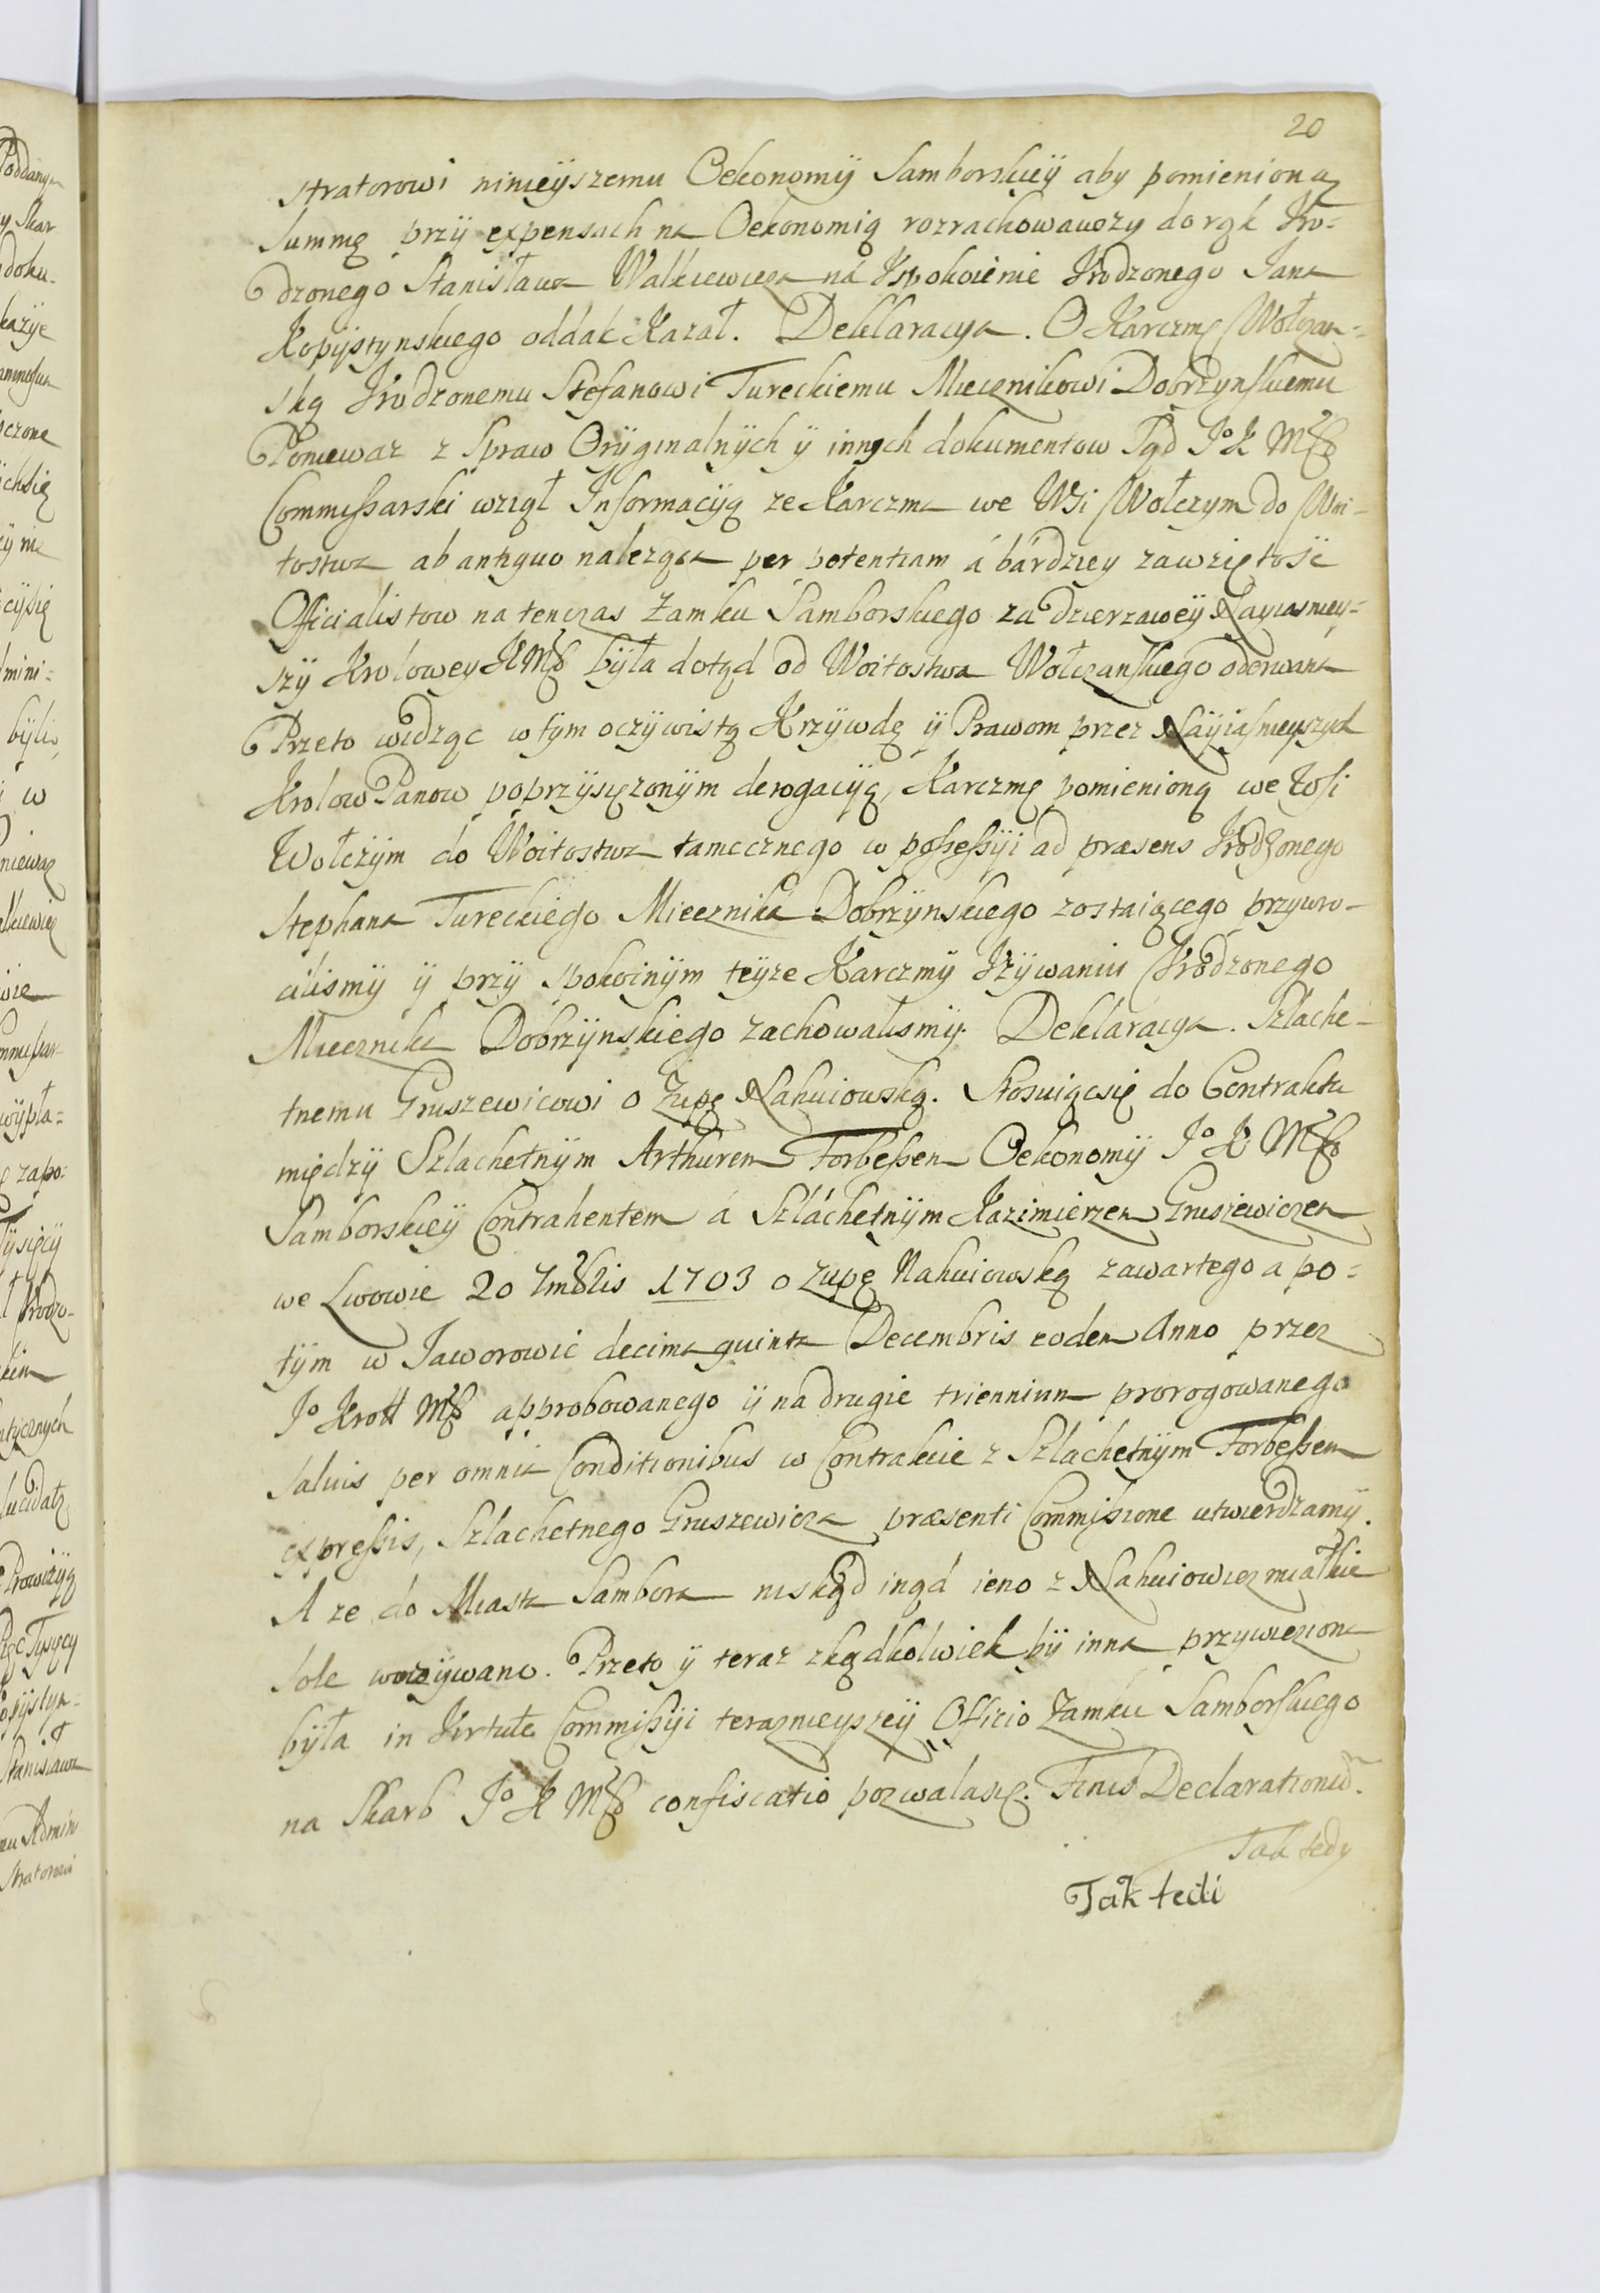 20
stratorowi ninieÿszemu Oekonomÿ Samborskieÿ aby pomienioną
Summę przÿ expensach na Oekonomią rozrachowawszy do rąk Uro=
dzonego Stanisława Walkiewicza ná Uspokoienie Urodzonego Jana
Kopÿstynskiego oddać Kazał. Deklaracya. O Karczmę Wołczan=
ską Urodzonemu Stefanowi Tureckiemu Miecznikowi Dobrzynskiemu
Poniewaz z Spraw Orÿginalnÿch ÿ innych dokumentow Sąd Jo K Mści
Commissarski wziął Informacÿą ze Karczma we Wsi Wołczym do Woi=
tostwa ab antiquo naleząca per potentiam á bárdziey zawziętość
Officialistow na tenczas Zamku Samborskiego za dzierzaweÿ Nayiasniey=
szÿ Krolowey KMści bÿła dotąd od Woitostwa Wołczanskiego oderwana
Przeto widząc w tym oczÿwistą Krzÿwdę ÿ Prawom przez Naÿiasnieyszych
Krolow Panow poprzÿsięzonÿm derogacÿą, Karczmę pomienioną we Wsi
Wołczÿm do Woitostwa tamecznego w possessÿi ad præsens Urodzonego
Stephana Tureckiego Miecznika Dobrzÿnskiego zostaiącego przywro=
cilismÿ ÿ przÿ spokoinÿm teÿze Karczmÿ Uzÿwaniu Urodzonego
Miecznika Dobrzÿnskiego zachowalismÿ. Deklaracya. Szlache=
tnemu Gruszewicowi o Zupę Nahuiowską. Stosuiącsię do Contraktu
międzÿ Szlachetnÿm Arthurem Forbessem Oekonomÿ Jo K Mści
Samborskieÿ Contrahentem á Szláchetnÿm Kazimierzem Gruszewiczem
we Lwowie 20 7mbris 1703 o Zupę Nahuiowską zawartego a po=
tÿm w Jaworowie decima quinta Decembris eodem Anno przez
Jo Kroll Mści approbowanego ÿ na drugie triennium prorogowanego
salvis per omnia Conditionibus w Contrakcie z Szlachetnÿm Forbessem
expressis, Szlachetnego Gruszewicza præsenti Commissione utwierdzamÿ.
A ze do Miasta Sambora niskąd ingd ieno z Nahuiowicz miałkie
sole wozÿwano. Przeto ÿ teraz zkądkolwiek bÿ inna przywieziona
bÿła in Virtute Commissÿi teraznieyszeÿ Officio Zamku Samborskiego
na Skarb Jo K Mści confiscatio pozwalasię. Finis Declarationum.
Tak tedy
Tak tedi